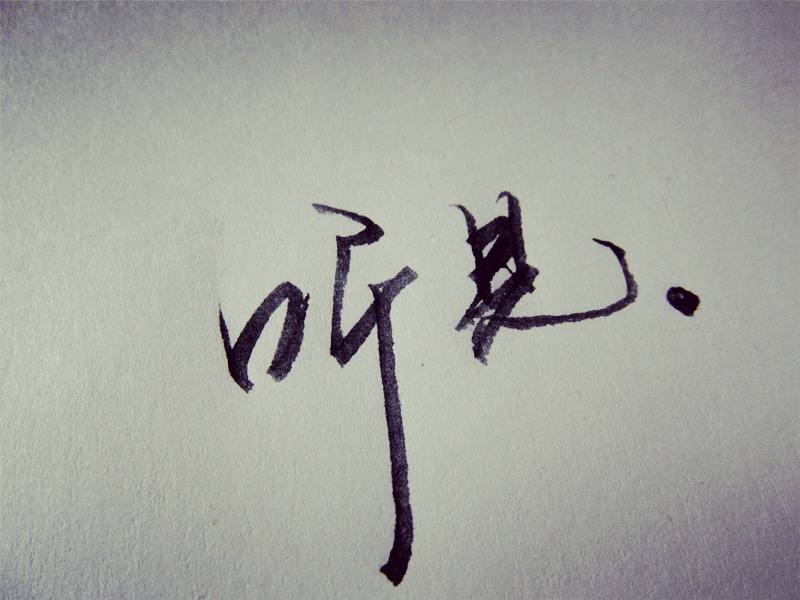 听见.